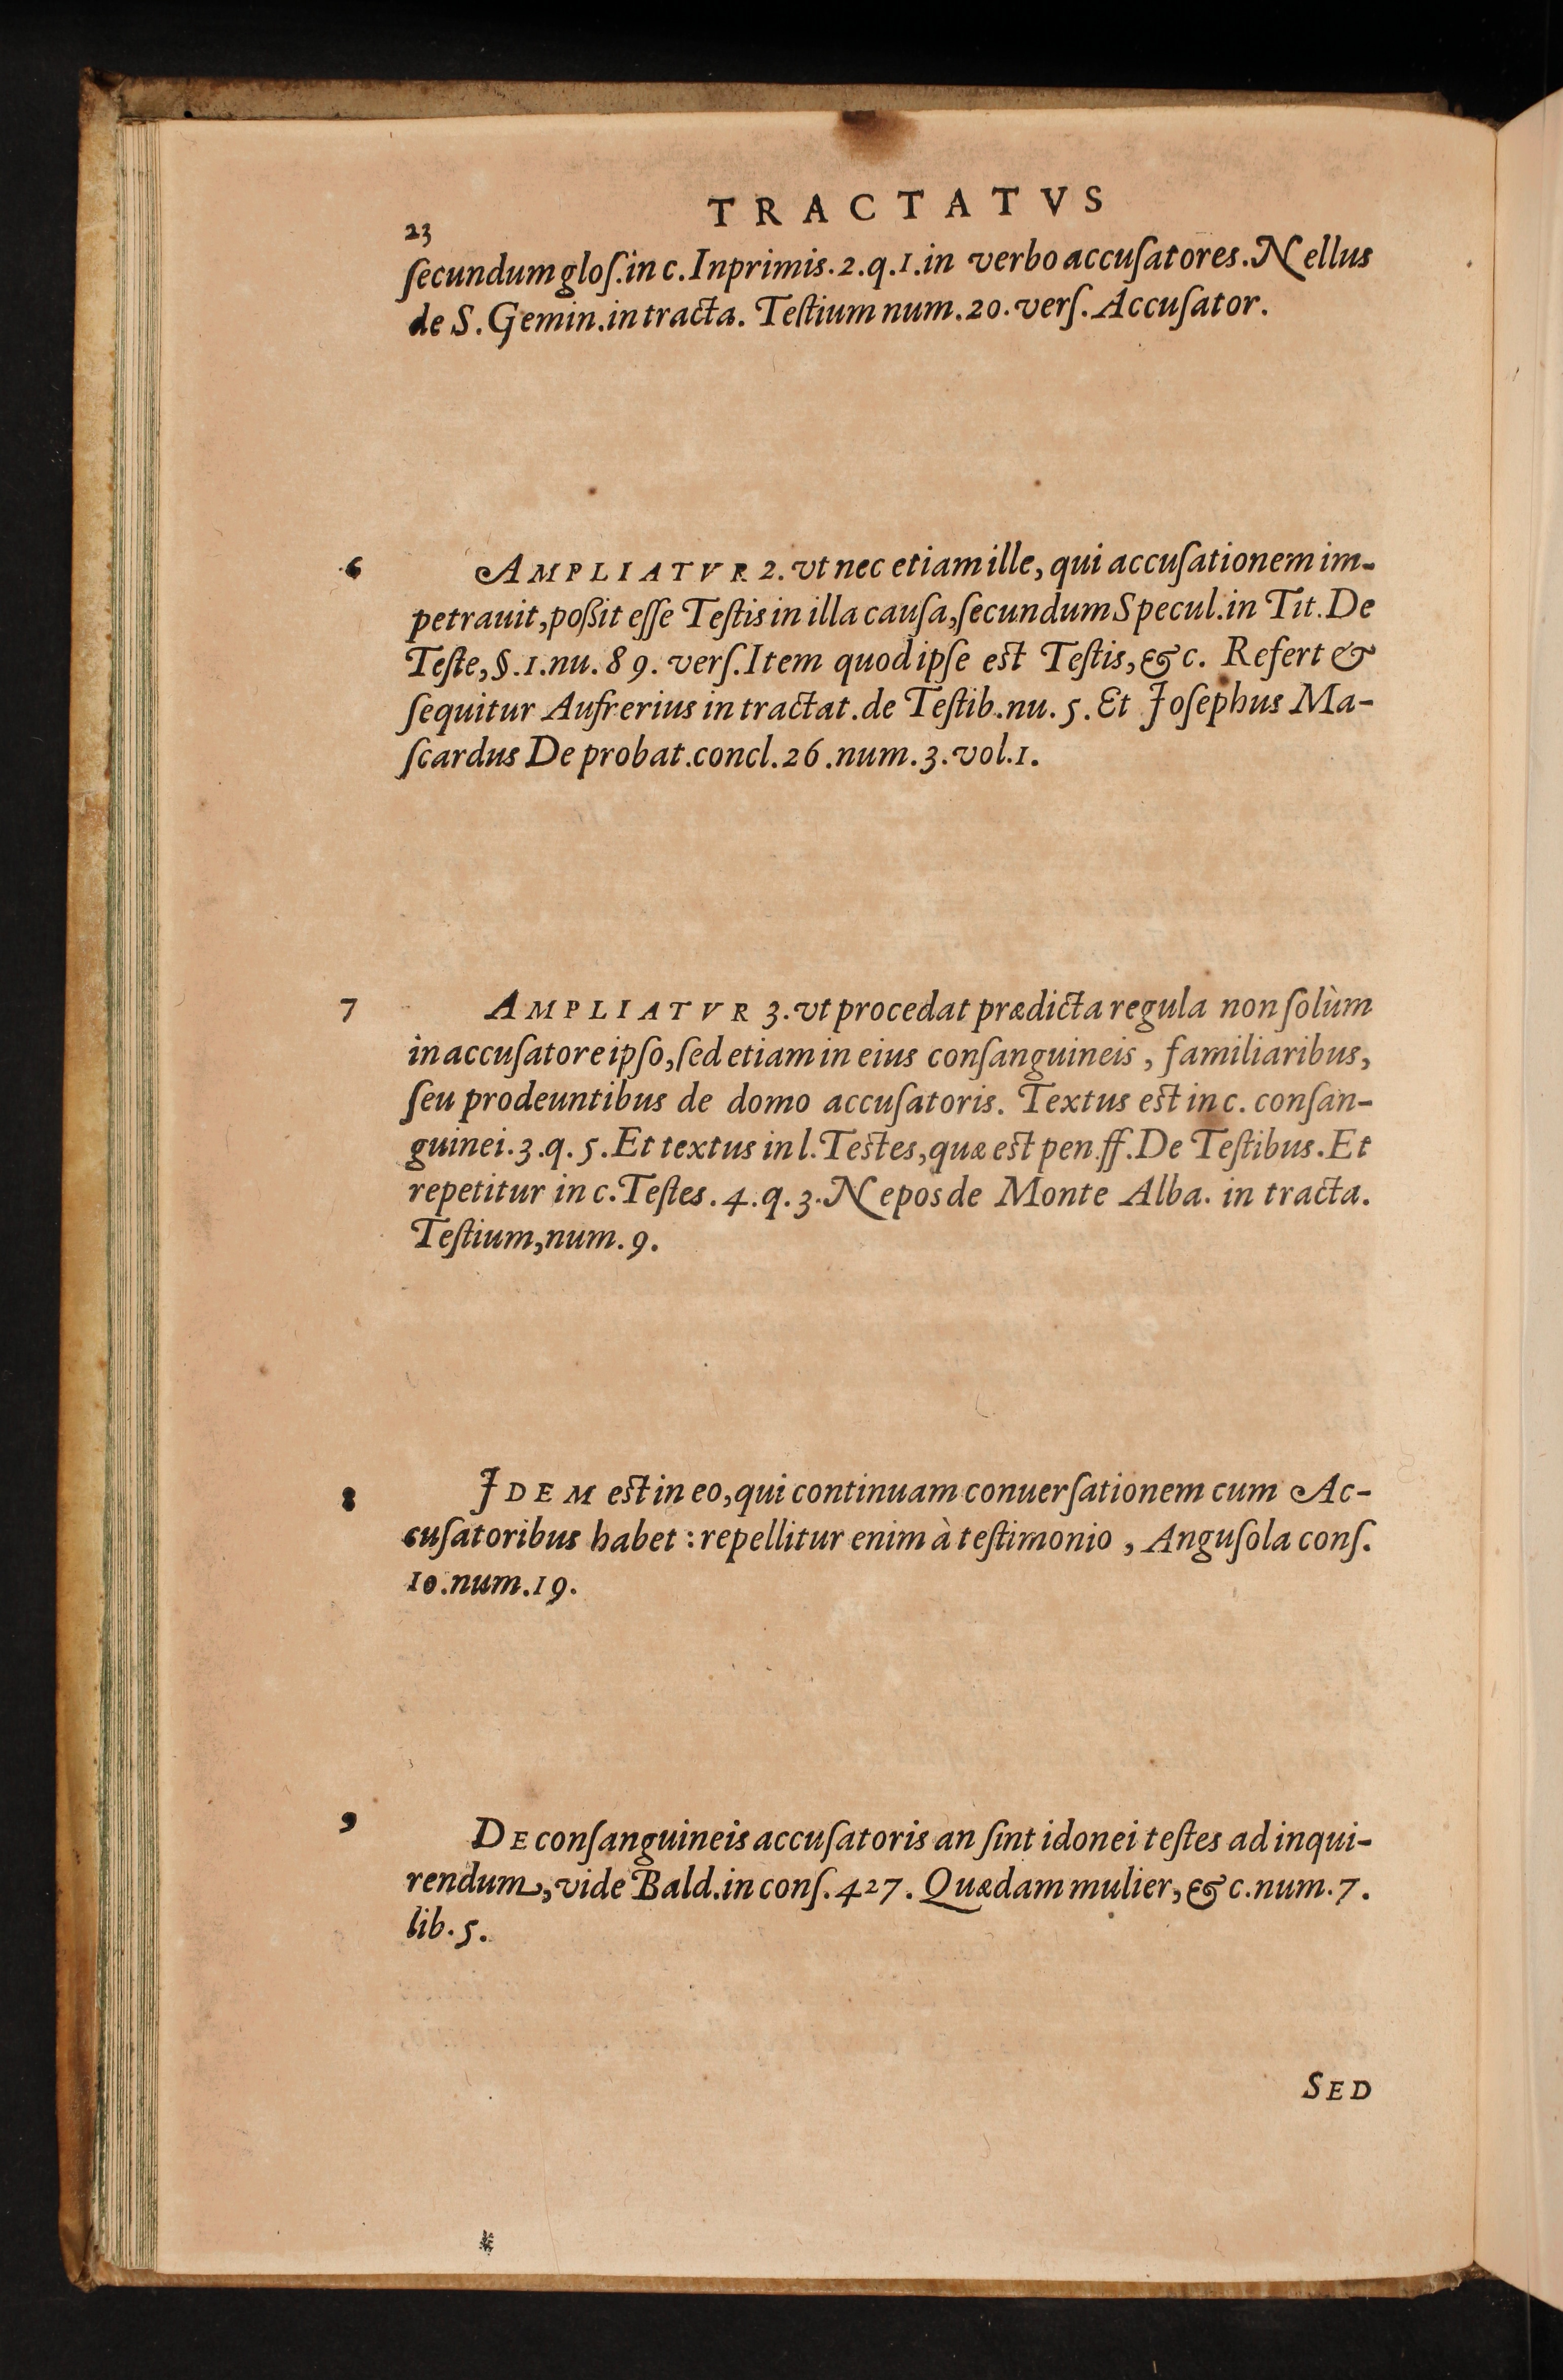 TRACTATVS
23
ſecundum gloſ. in c. Inprimis. 2. q. 1. in verbo accuſatores. Nellus
de S. Gemin. in tracta. Teſtium num. 20. verſ. Accuſator.
6 AMPLIATVR 2. vt nec etiam ille, qui accuſationem im-
petrauit, poßit eſſe Teſtis in illa cauſa, ſecundum Specul. in Tit. De
Teſte, §. 1. nu. 89. verſ. Item quod ipſe est Teſtis, &c. Refert &
ſequitur Aufrerius in tractat. de Teſtib. nu. 5. Et Joſephus Ma-
ſcardus De probat. concl. 26. num. 3. vol. 1.
7 AMPLIATVR 3. vt procedat prædicta regula non ſolùm
in accuſatore ipſo, ſed etiam in eius conſanguineis, familiaribus,
ſeu prodeuntibus de domo accuſatoris. Textus est in c. conſan-
guinei. 3. q. 5. Et textus in l. Testes, quæ est pen. ff. De Teſtibus. Et
repetitur in c. Teſtes. 4. q. 3. Nepos de Monte Alba. in tracta.
Teſtium, num. 9.
8 JDEM est in eo, qui continuam conuerſationem cum Ac-
cuſatoribus habet : repellitur enim à teſtimonio, Anguſola conſ.
10. num. 19.
9 DE conſanguineis accuſatoris an ſint idonei teſtes ad inqui-
rendum, vide Bald. in conſ. 427. Quædam mulier, &c. num. 7.
lib. 5.
SED